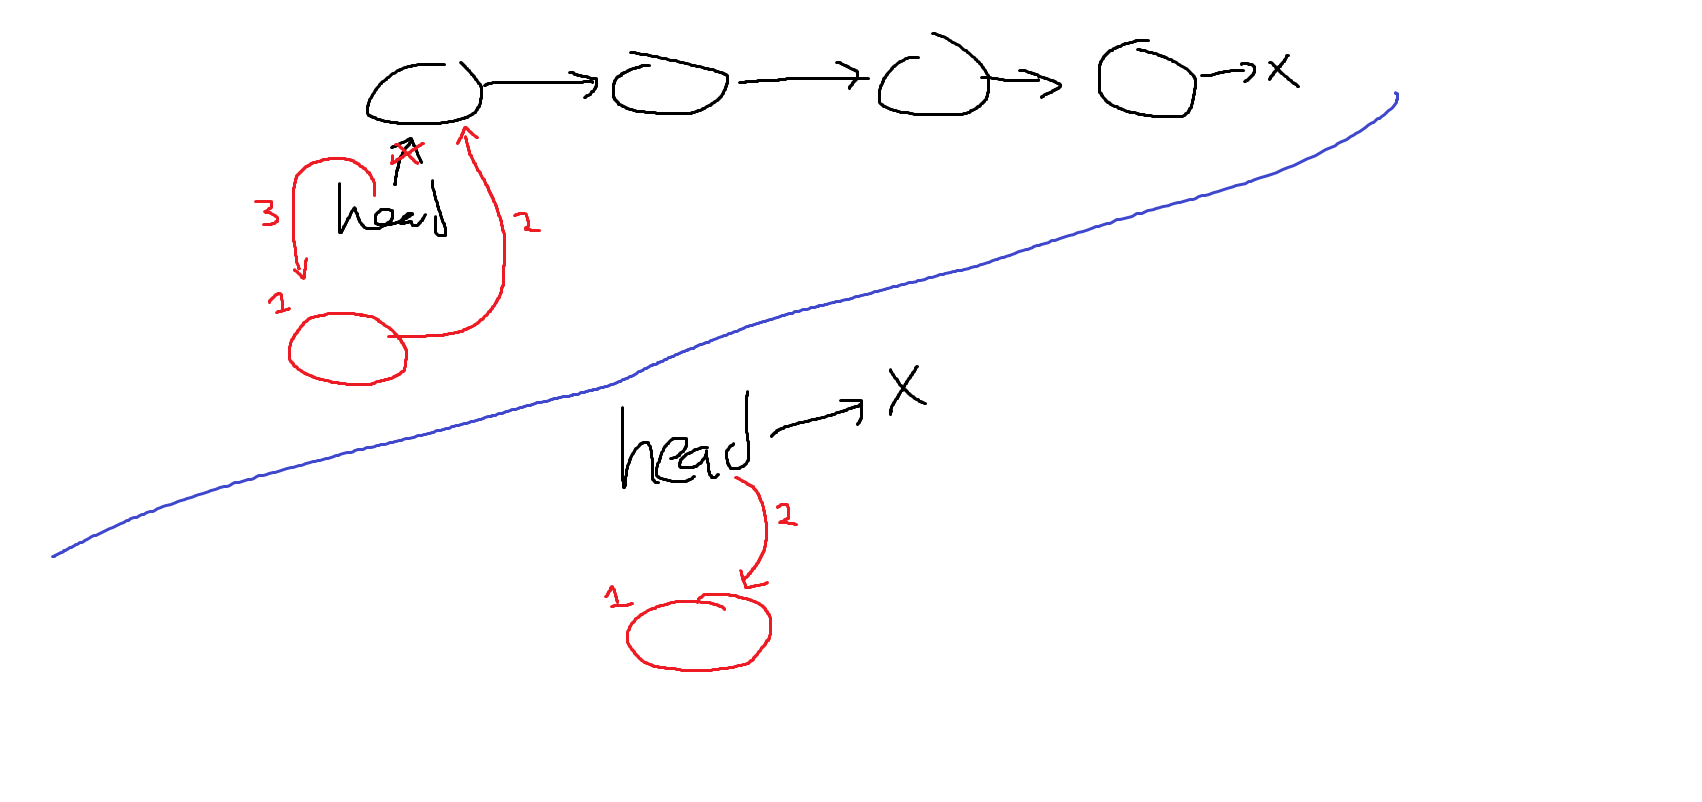 X
head
3
2
1
head
X
2
1